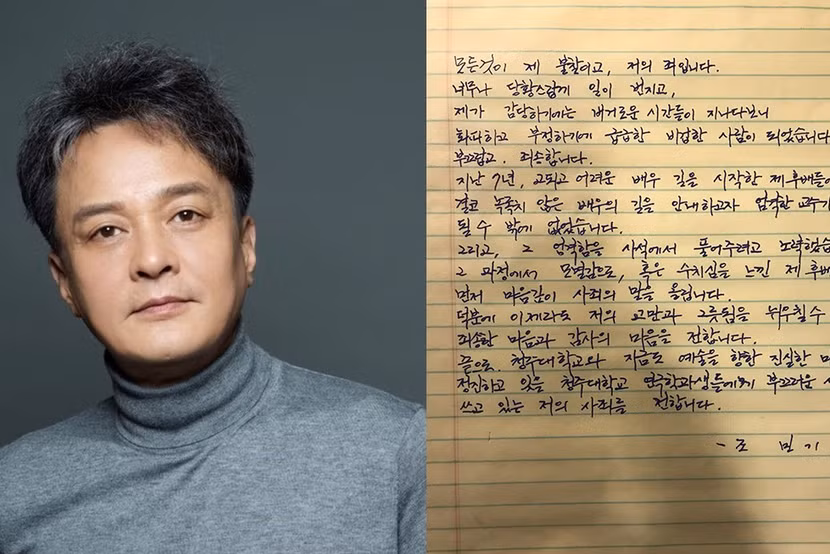 모든것이 제 불찰이고, 저의 죄입니다.
너무나 당황스럽게 일이 번지고,
제가 감당하기에는 버거로운 시간들이 지나다보니
회피하고 부정하기에 급급한 비겁한 사람이 되었습니다
부끄럽고. 죄송합니다.
지난 7년, 고되고 어려운 배우 길을 시작한 제 후배들에
결코 녹록치 않은 배우의 길을 안내하고자 엄격한 교수가
될 수 밖에 없었습니다.
그리고, 그 엄격함을 사석에서 풀어주려고 노력했습
그 과정에서 모멸감으로, 혹은 수치심을 느낀 제 후배
먼저 마음깊이 사죄의 말을 올립니다.
덕분에 이제라도 저의 교만과 그릇됨을 뉘우칠수
죄송한 마음과 감사의 마음을 전합니다.
끝으로. 청주대학교와 지금도 예술을 향한 진실한 마
정진하고 있을 청주대학교 연극학과생들에게 부끄러운 사
쓰고 있는 저의 사죄를 전합니다.
- 조 민 기